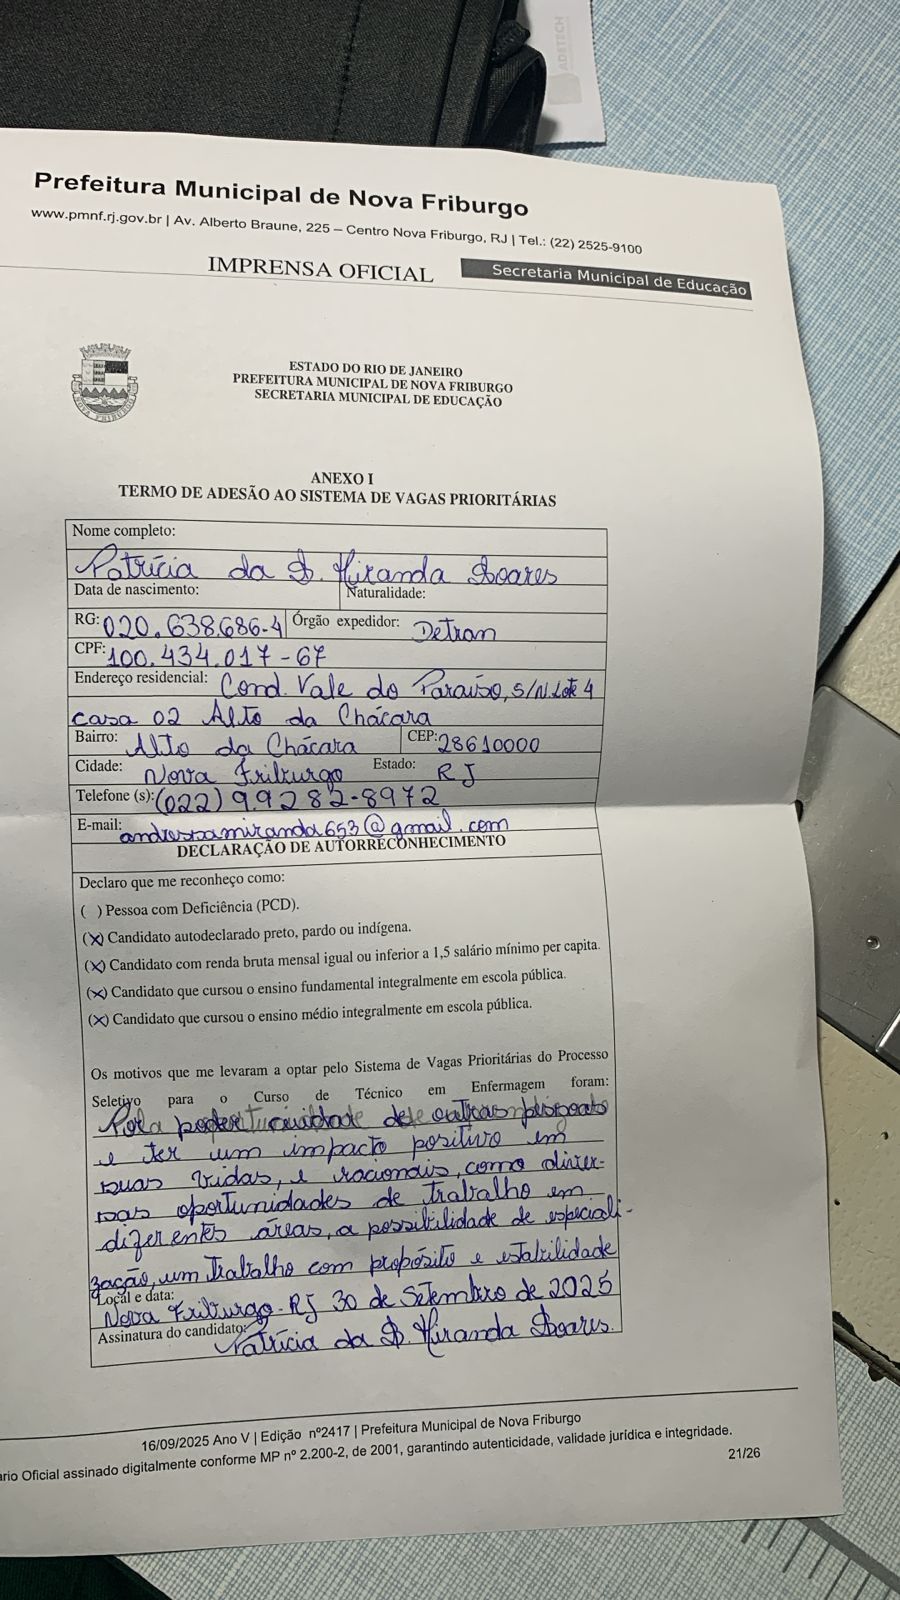 ADETECH
Prefeitura Municipal de Nova Friburgo
www.pmnf.rj.gov.br | Av. Alberto Braune, 225 – Centro Nova Friburgo, RJ | Tel.: (22) 2525-9100
IMPRENSA OFICIAL Secretaria Municipal de Educação
NOVA FRIBURGO
ESTADO DO RIO DE JANEIRO
PREFEITURA MUNICIPAL DE NOVA FRIBURGO
SECRETARIA MUNICIPAL DE EDUCAÇÃO
ANEXO I
TERMO DE ADESÃO AO SISTEMA DE VAGAS PRIORITÁRIAS
Nome completo:
Patrícia da S. Miranda Soares
Data de nascimento: Naturalidade:
RG: 020.638.686-4 Órgão expedidor: Detran
CPF: 100.434.017-67
Endereço residencial: Cond. Vale do Paraíso, S/N. Lote 4
casa 02 Alto da Chácara
Bairro: Alto da Chácara CEP: 28610000
Cidade: Nova Friburgo Estado: RJ
Telefone (s): (022) 9.9282-8972
E-mail: andressamiranda653@gmail.com
DECLARAÇÃO DE AUTORRECONHECIMENTO
Declaro que me reconheço como:
( ) Pessoa com Deficiência (PCD).
(X) Candidato autodeclarado preto, pardo ou indígena.
(X) Candidato com renda bruta mensal igual ou inferior a 1,5 salário mínimo per capita.
(X) Candidato que cursou o ensino fundamental integralmente em escola pública.
(X) Candidato que cursou o ensino médio integralmente em escola pública.
Os motivos que me levaram a optar pelo Sistema de Vagas Prioritárias do Processo
Seletivo para o Curso de Técnico em Enfermagem foram:
Pela poder cuidar de outras
e ter um impacto positivo em
suas vidas, e racionais, como diver-
sas oportunidades de trabalho em
diferentes áreas, a possibilidade de especiali-
zação, um trabalho com propósito e estabilidade
Local e data:
Nova Friburgo-RJ 30 de Setembro de 2025
Assinatura do candidato: Patrícia da S. Miranda Soares.
16/09/2025 Ano V | Edição nº2417 | Prefeitura Municipal de Nova Friburgo
ário Oficial assinado digitalmente conforme MP nº 2.200-2, de 2001, garantindo autenticidade, validade jurídica e integridade.
21/26